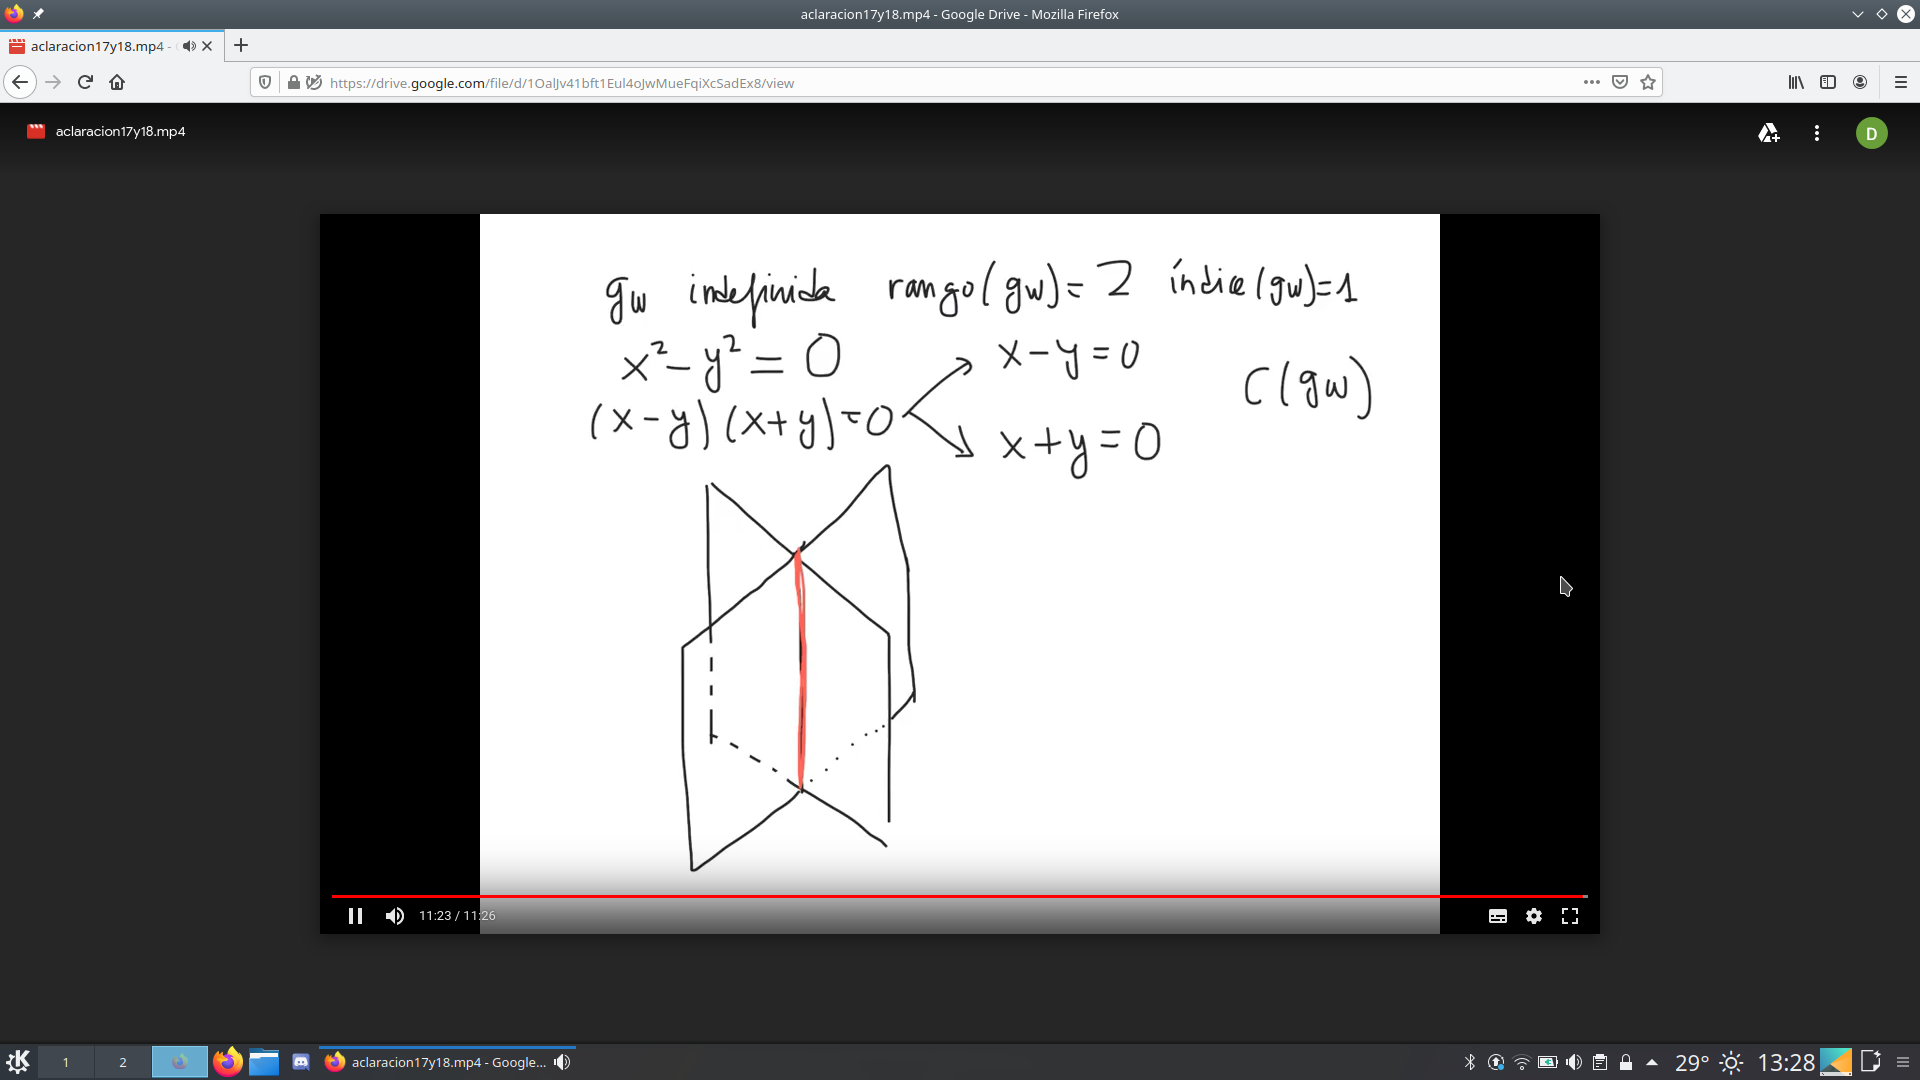 aclaracion17y18.mp4 - Google Drive - Mozilla Firefox
aclaracion17y18.mp4 -
https://drive.google.com/file/d/1OalJv41bft1Eul4oJwMueFqiXcSadEx8/view
aclaracion17y18.mp4
D
gw indefinida rango(gw)=2 índice(gw)=1
x²-y²=0
x-y=0
C(gw)
(x-y)(x+y)=0
x+y=0
11:23 / 11:26
1
2
aclaracion17y18.mp4 - Google...
29°
13:28